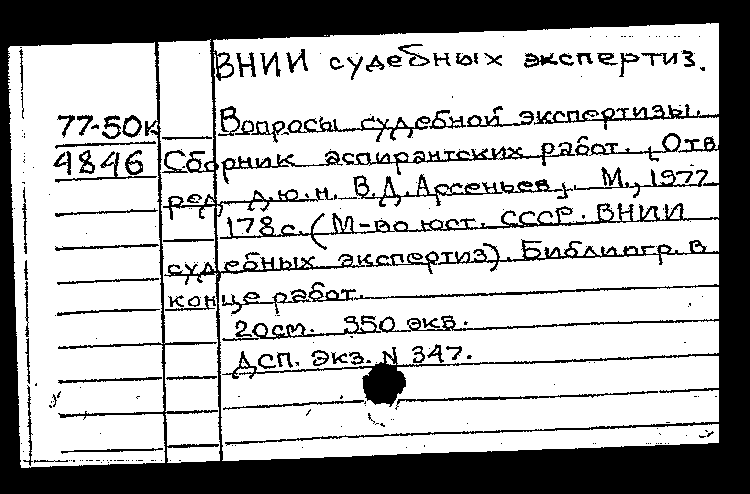 ВНИИ судебных экспертиз.
77-50к Вопросы судебной экспертизы.
4846 Сборник аспирантских работ. [Отв.
ред. д.ю.н. В.Д. Арсеньев]. М., 1977
178 с. (М-во юст. СССР. ВНИИ
судебных экспертиз). Библиогр. в
конце работ.
20см. 350 экз.
Дсп. Экз. N 347.